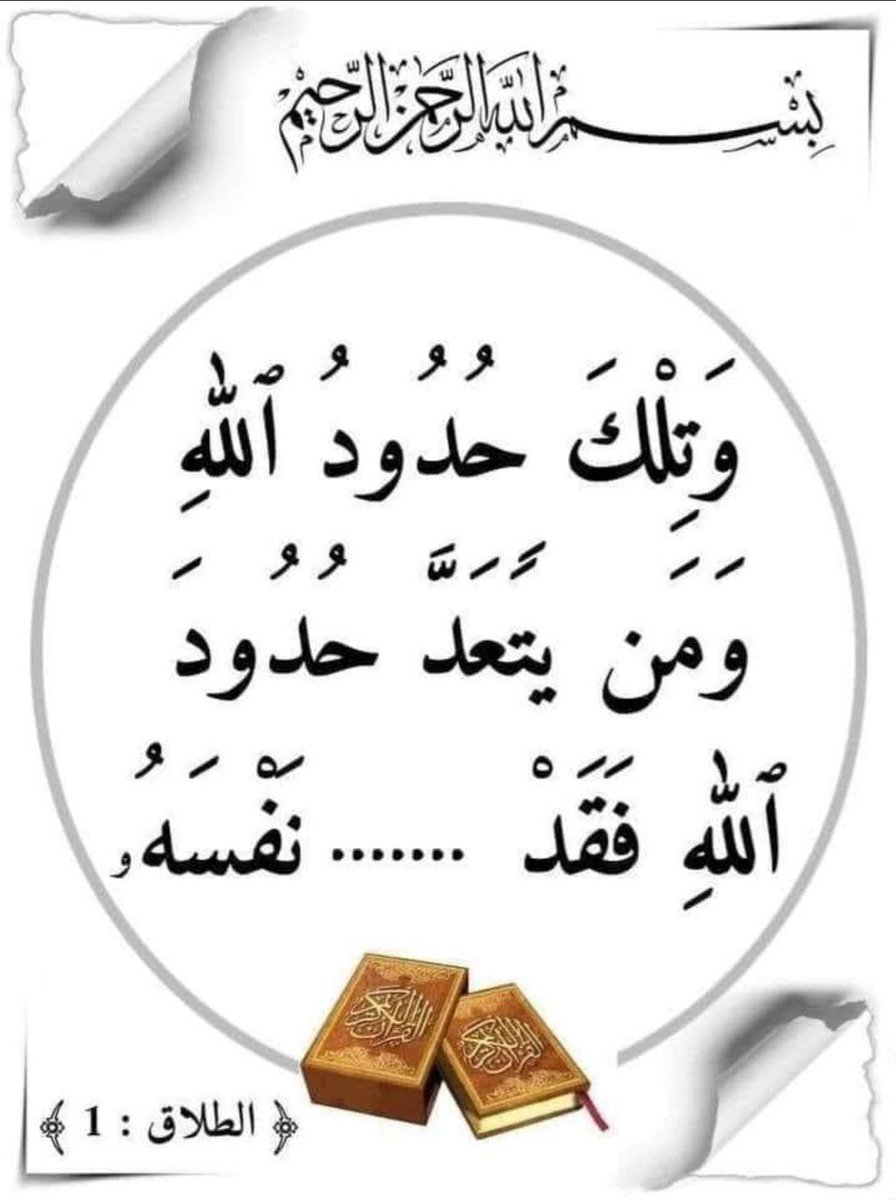 بِسْمِ اللَّهِ الرَّحْمَنِ الرَّحِيمِ
وَتِلْكَ حُدُودُ ٱللَّهِ
وَمَن يَتَعَدَّ حُدُودَ
ٱللَّهِ فَقَدْ ....... نَفْسَهُۥ
القرآن الكريم
القرآن الكريم
﴿ الطلاق : 1 ﴾